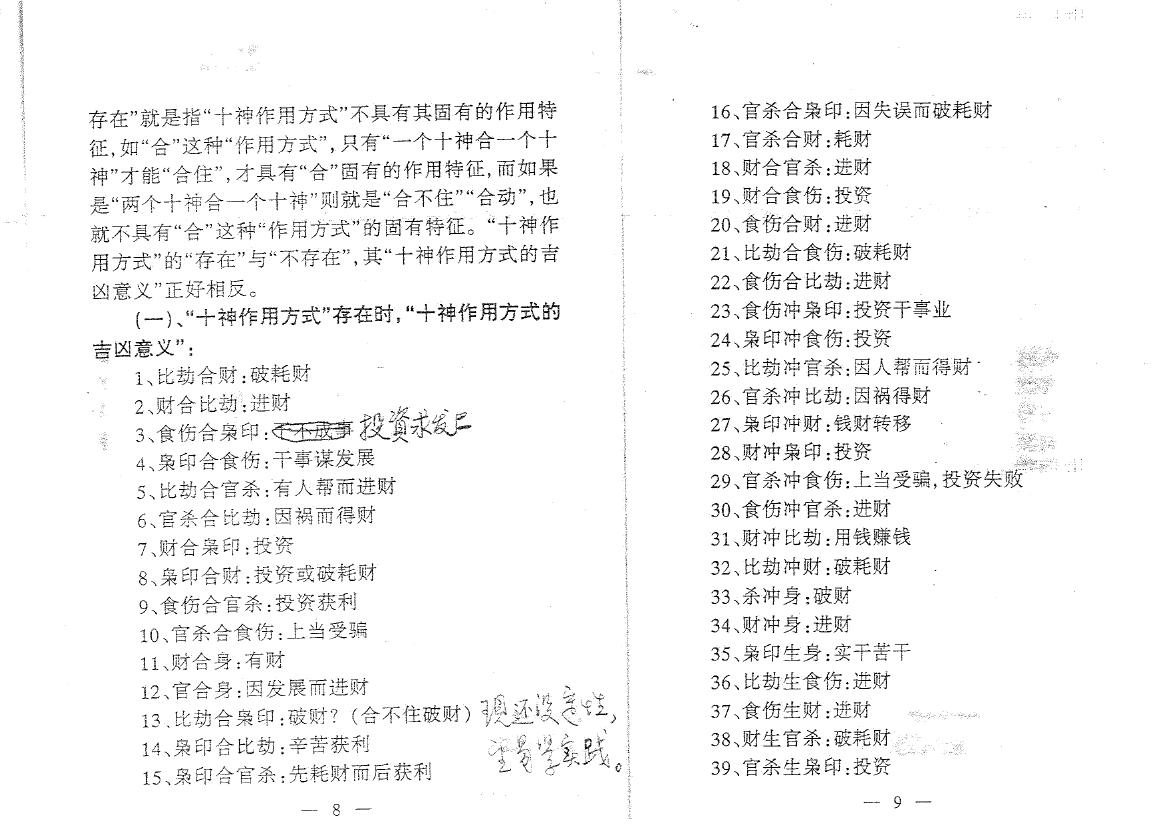 存在”就是指“十神作用方式”不具有其固有的作用特
征,如“合”这种“作用方式”,只有“一个十神合一个十
神”才能“合住”,才具有“合”固有的作用特征,而如果
是“两个十神合一个十神”则就是“合不住”“合动”,也
就不具有“合”这种“作用方式”的固有特征。“十神作
用方式”的“存在”与“不存在”,其“十神作用方式的吉
凶意义”正好相反。
(一)、“十神作用方式”存在时,“十神作用方式的
吉凶意义”:
1、比劫合财:破耗财
2、财合比劫:进财
3、食伤合枭印:干不成事 投資求发
4、枭印合食伤:干事谋发展
5、比劫合官杀:有人帮而进财
6、官杀合比劫:因祸而得财
7、财合枭印:投资
8、枭印合财:投资或破耗财
9、食伤合官杀:投资获利
10、官杀合食伤:上当受骗
11、财合身:有财
12、官合身:因发展而进财
13、比劫合枭印:破财?(合不住破财) 现还没定性,
14、枭印合比劫:辛苦获利
实践。
15、枭印合官杀:先耗财而后获利
— 8 —
16、官杀合枭印:因失误而破耗财
17、官杀合财:耗财
18、财合官杀:进财
19、财合食伤:投资
20、食伤合财:进财
21、比劫合食伤:破耗财
22、食伤合比劫:进财
23、食伤冲枭印:投资干事业
24、枭印冲食伤:投资
25、比劫冲官杀:因人帮而得财
26、官杀冲比劫:因祸得财
27、枭印冲财:钱财转移
28、财冲枭印:投资
29、官杀冲食伤:上当受骗,投资失败
30、食伤冲官杀:进财
31、财冲比劫:用钱赚钱
32、比劫冲财:破耗财
33、杀冲身:破财
34、财冲身:进财
35、枭印生身:实干苦干
36、比劫生食伤:进财
37、食伤生财:进财
38、财生官杀:破耗财
39、官杀生枭印:投资
— 9 —